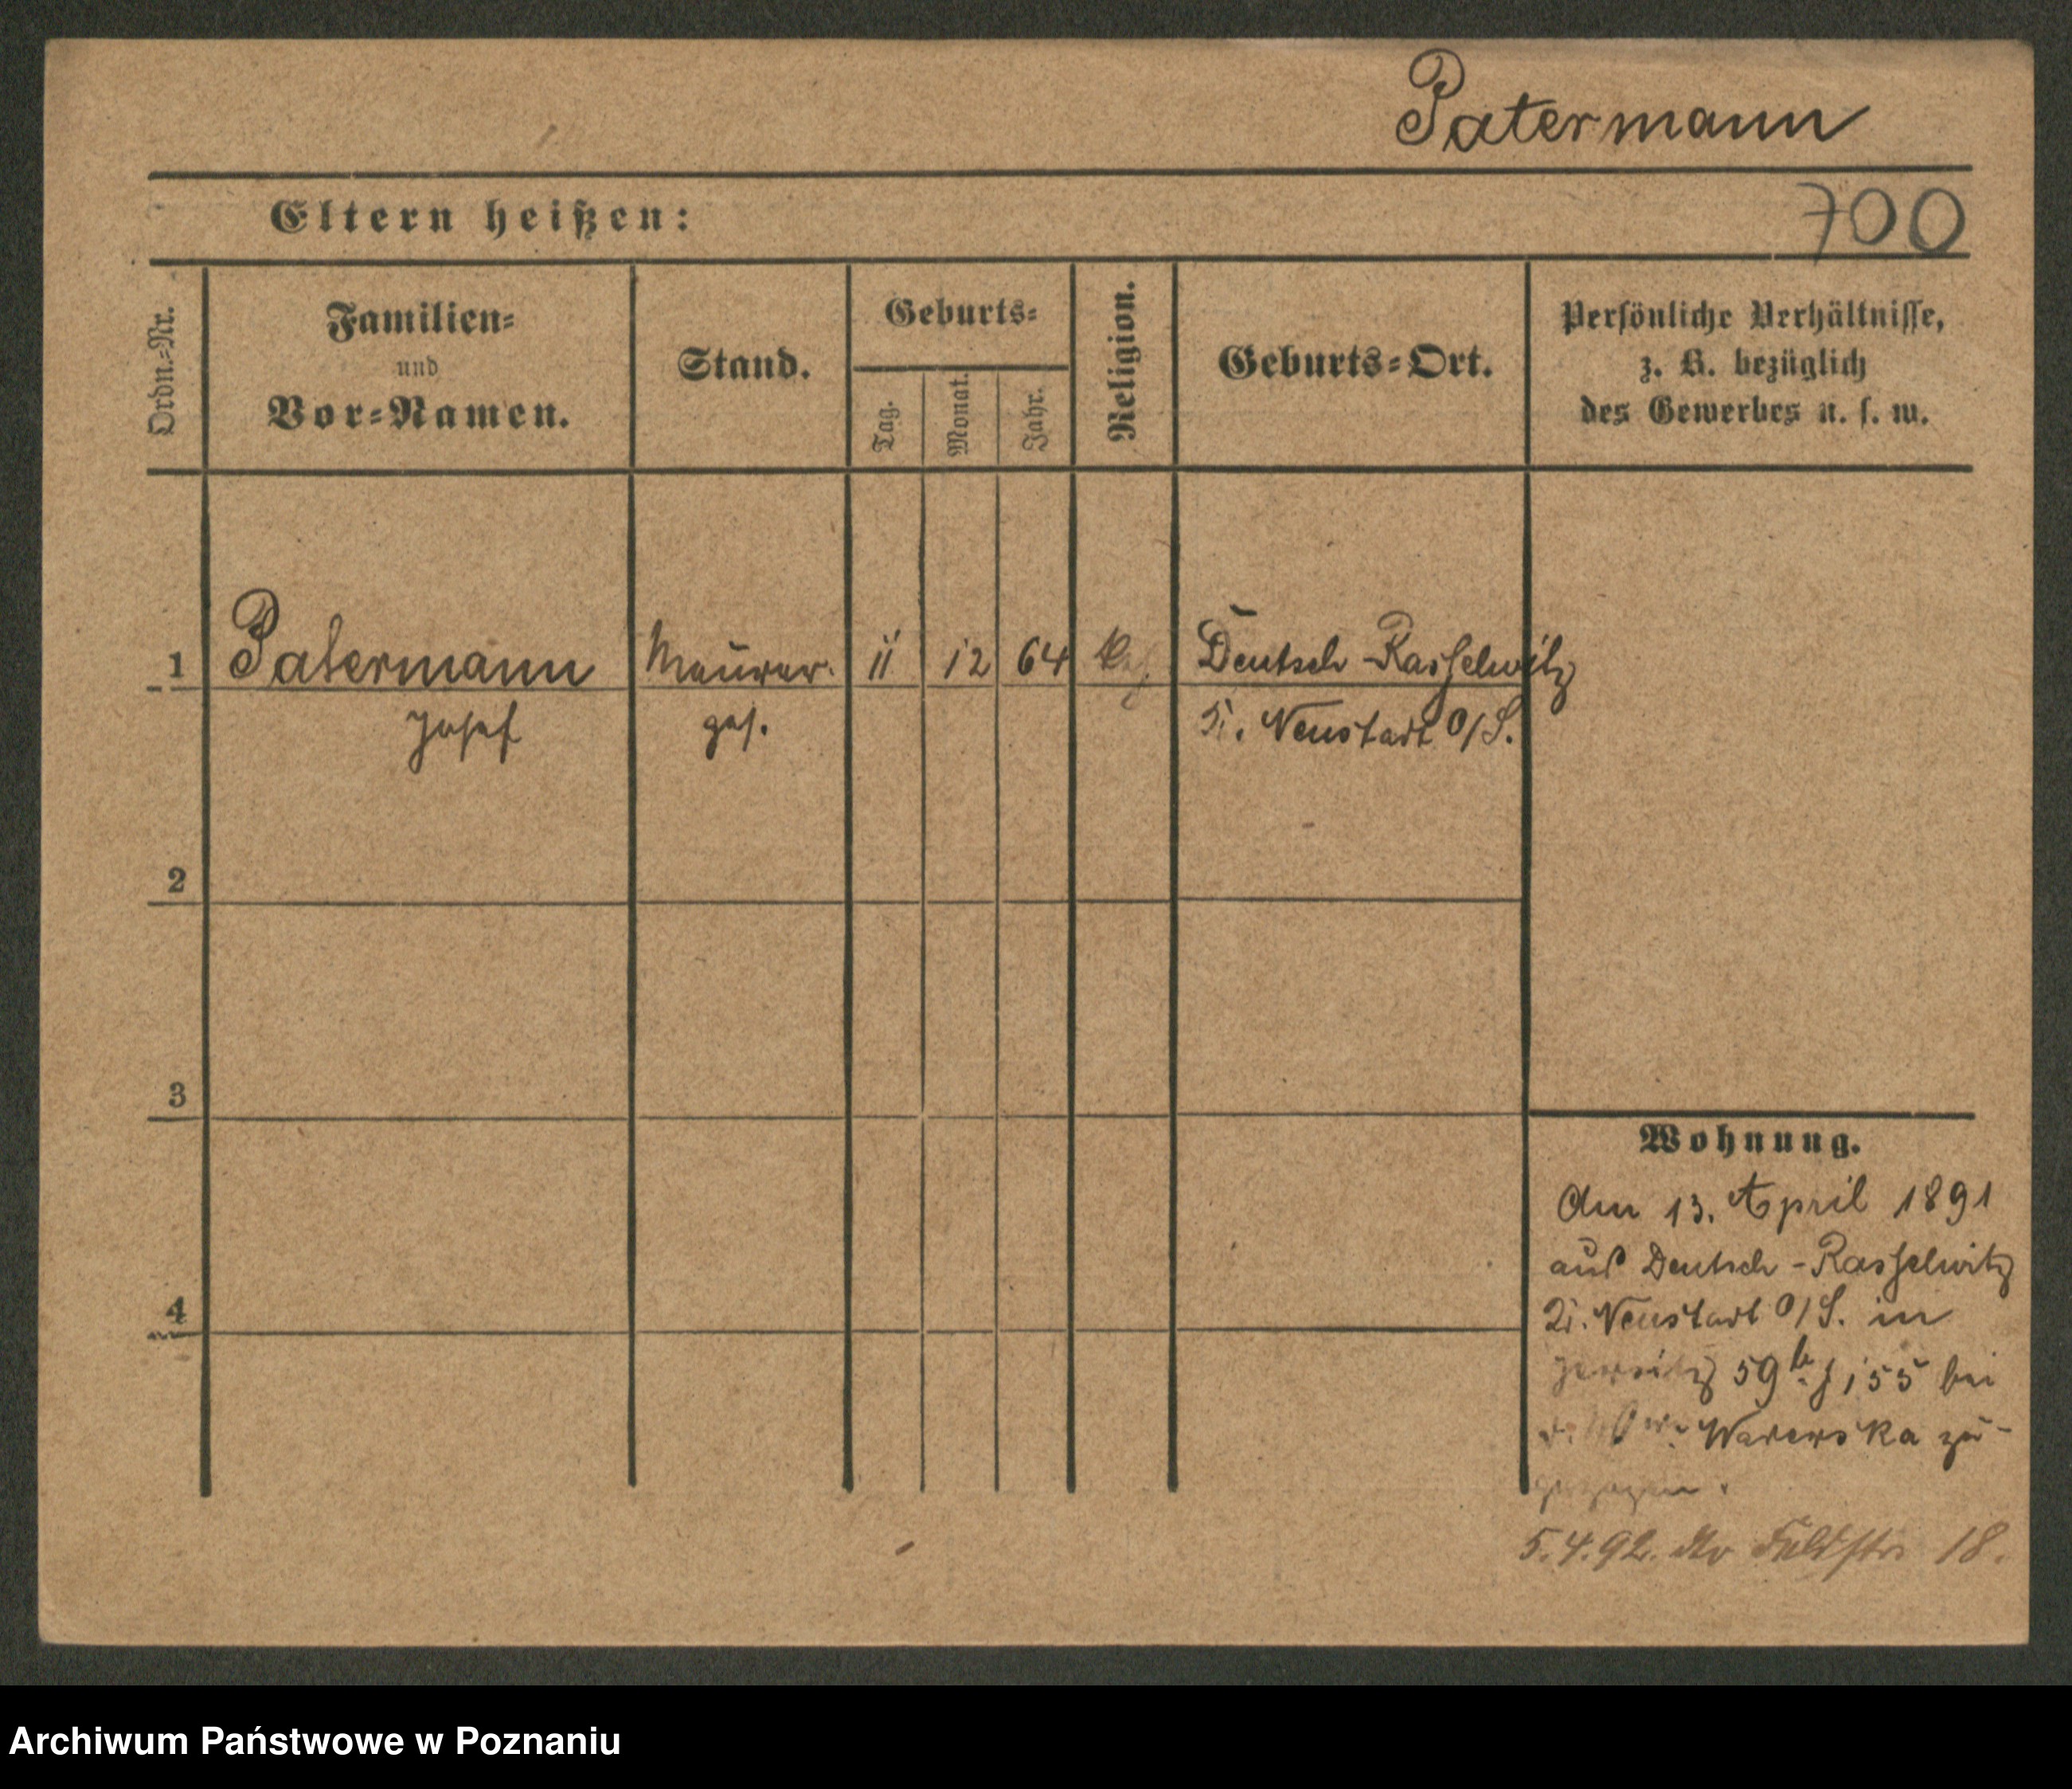 Patermann
Eltern heißen:
700
Ordn.-Nr.
Familien-
und
Vor-Namen.
Stand.
Geburts-
Tag.
Monat.
Jahr.
Religion.
Geburts-Ort.
Persönliche Verhältnisse,
z. B. bezüglich
des Gewerbes u. s. w.
1 Patermann Maurer. 11 12 64 Deutsch-Rasselwitz
Josef ges. Neustadt O/S.
2
3
4
Wohnung.
Am 13. April 1891
aus Deutsch-Rasselwitz
Neustadt O/S. in
Jersitz 59 155 bei
Wawerska zu-
gezogen.
5.4.92. Feldstr. 18.
Archiwum Państwowe w Poznaniu